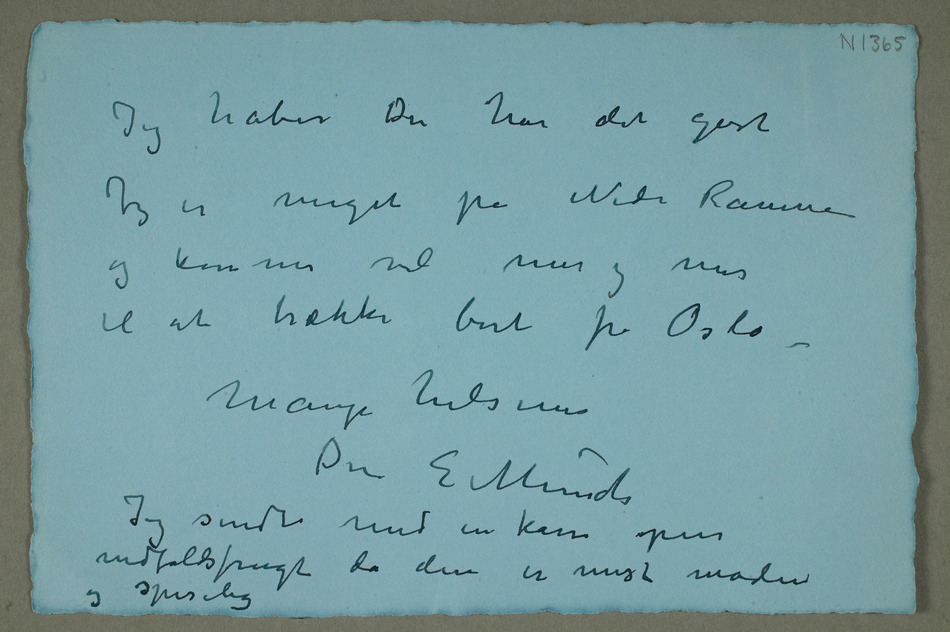 N 1365
Jeg haber Du har det godt
Jeg er meget på Nedre Ramme
og kommer vel mer og mer
til at trække bort fra Oslo –
Mange hilsener
Din E Munch
Jeg sendte med en kasse epler
nedfaldsfrugt da den er mest moden
og spiselig